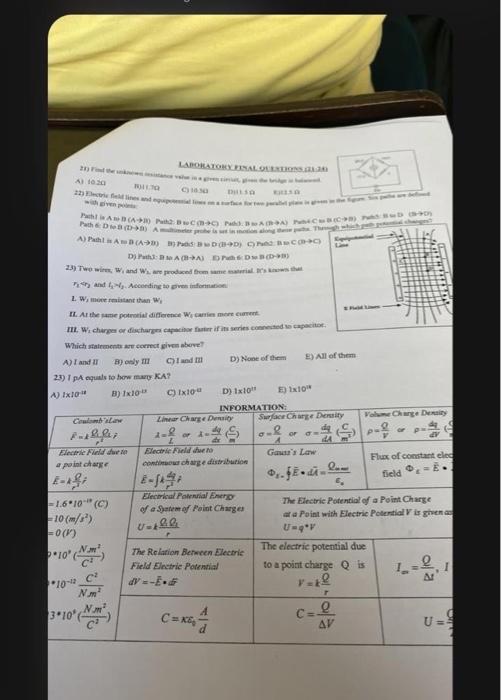 LABORATORY FINAL QUESTIONS (21-24)
21) Find the unknown resistance value in a given circuit, given the bridge is balanced.
A) 10.2Ω B) 11.7Ω C) 10.5Ω D) 11.5Ω E) 12.5Ω
22) Electric field lines and equipotential lines on a surface for two parallel plates is given in the figure. Six paths are defined
with given points:
Path1 is A to B (A→B) Path2: B to C (B→C) Path3: B to A (B→A) Path4: C to B (C→B) Path5: B to D (B→D)
Path 6: D to B (D→B) A multimeter probe is set in motion along these paths. Through which path potential changes?
A) Path1 is A to B (A→B) B) Path5: B to D (B→D) C) Path2: B to C (B→C)
D) Path3: B to A (B→A) E) Path 6: D to B (D→B)
Equipotential
Line
E Field Lines
23) Two wires, W₁ and W₂, are produced from same material. It's known that
r₁<r₂ and l₁>l₂. According to given information:
I. W₁ more resistant than W₂
II. At the same potential difference W₂ carries more current.
III. W₁ charges or discharges capacitor faster if its series connected to capacitor.
Which statements are correct given above?
A) I and II B) only III C) I and III D) None of them E) All of them
23) 1 pA equals to how many KA?
A) 1x10⁻¹⁸ B) 1x10⁻¹⁵ C) 1x10⁻¹² D) 1x10¹⁵ E) 1x10¹⁸
INFORMATION:
Coulomb's Law Linear Charge Density Surface Charge Density Volume Charge Density
F=k Q₁Q₂/r² r̂ λ=Q/L or λ=dq/dx (C/m) σ=Q/A or σ=dq/dA (C/m²) ρ=Q/V or ρ=dq/dV
Electric Field due to Electric Field due to Gauss's Law Flux of constant elec
a point charge continuous charge distribution field Φ_E = E •
E=k Q/r² r̂ E=∫k dq/r² r̂ Φ_E=∮E•dA=Q/ε₀
=1.6*10⁻¹⁹ (C) Electrical Potential Energy The Electric Potential of a Point Charge
=10 (m/s²) of a System of Point Charges at a Point with Electric Potential V is given as
=0(V) U=k Q₁Q₂/r U=q*V
9*10⁹ (N.m²/C²) The Relation Between Electric The electric potential due
Field Electric Potential to a point charge Q is
*10⁻¹² C²/N.m² dV=-E•dr V=k Q/r I = Q/Δt, I
3*10⁹ (N.m²/C²) C=κε₀ A/d C=Q/ΔV U=